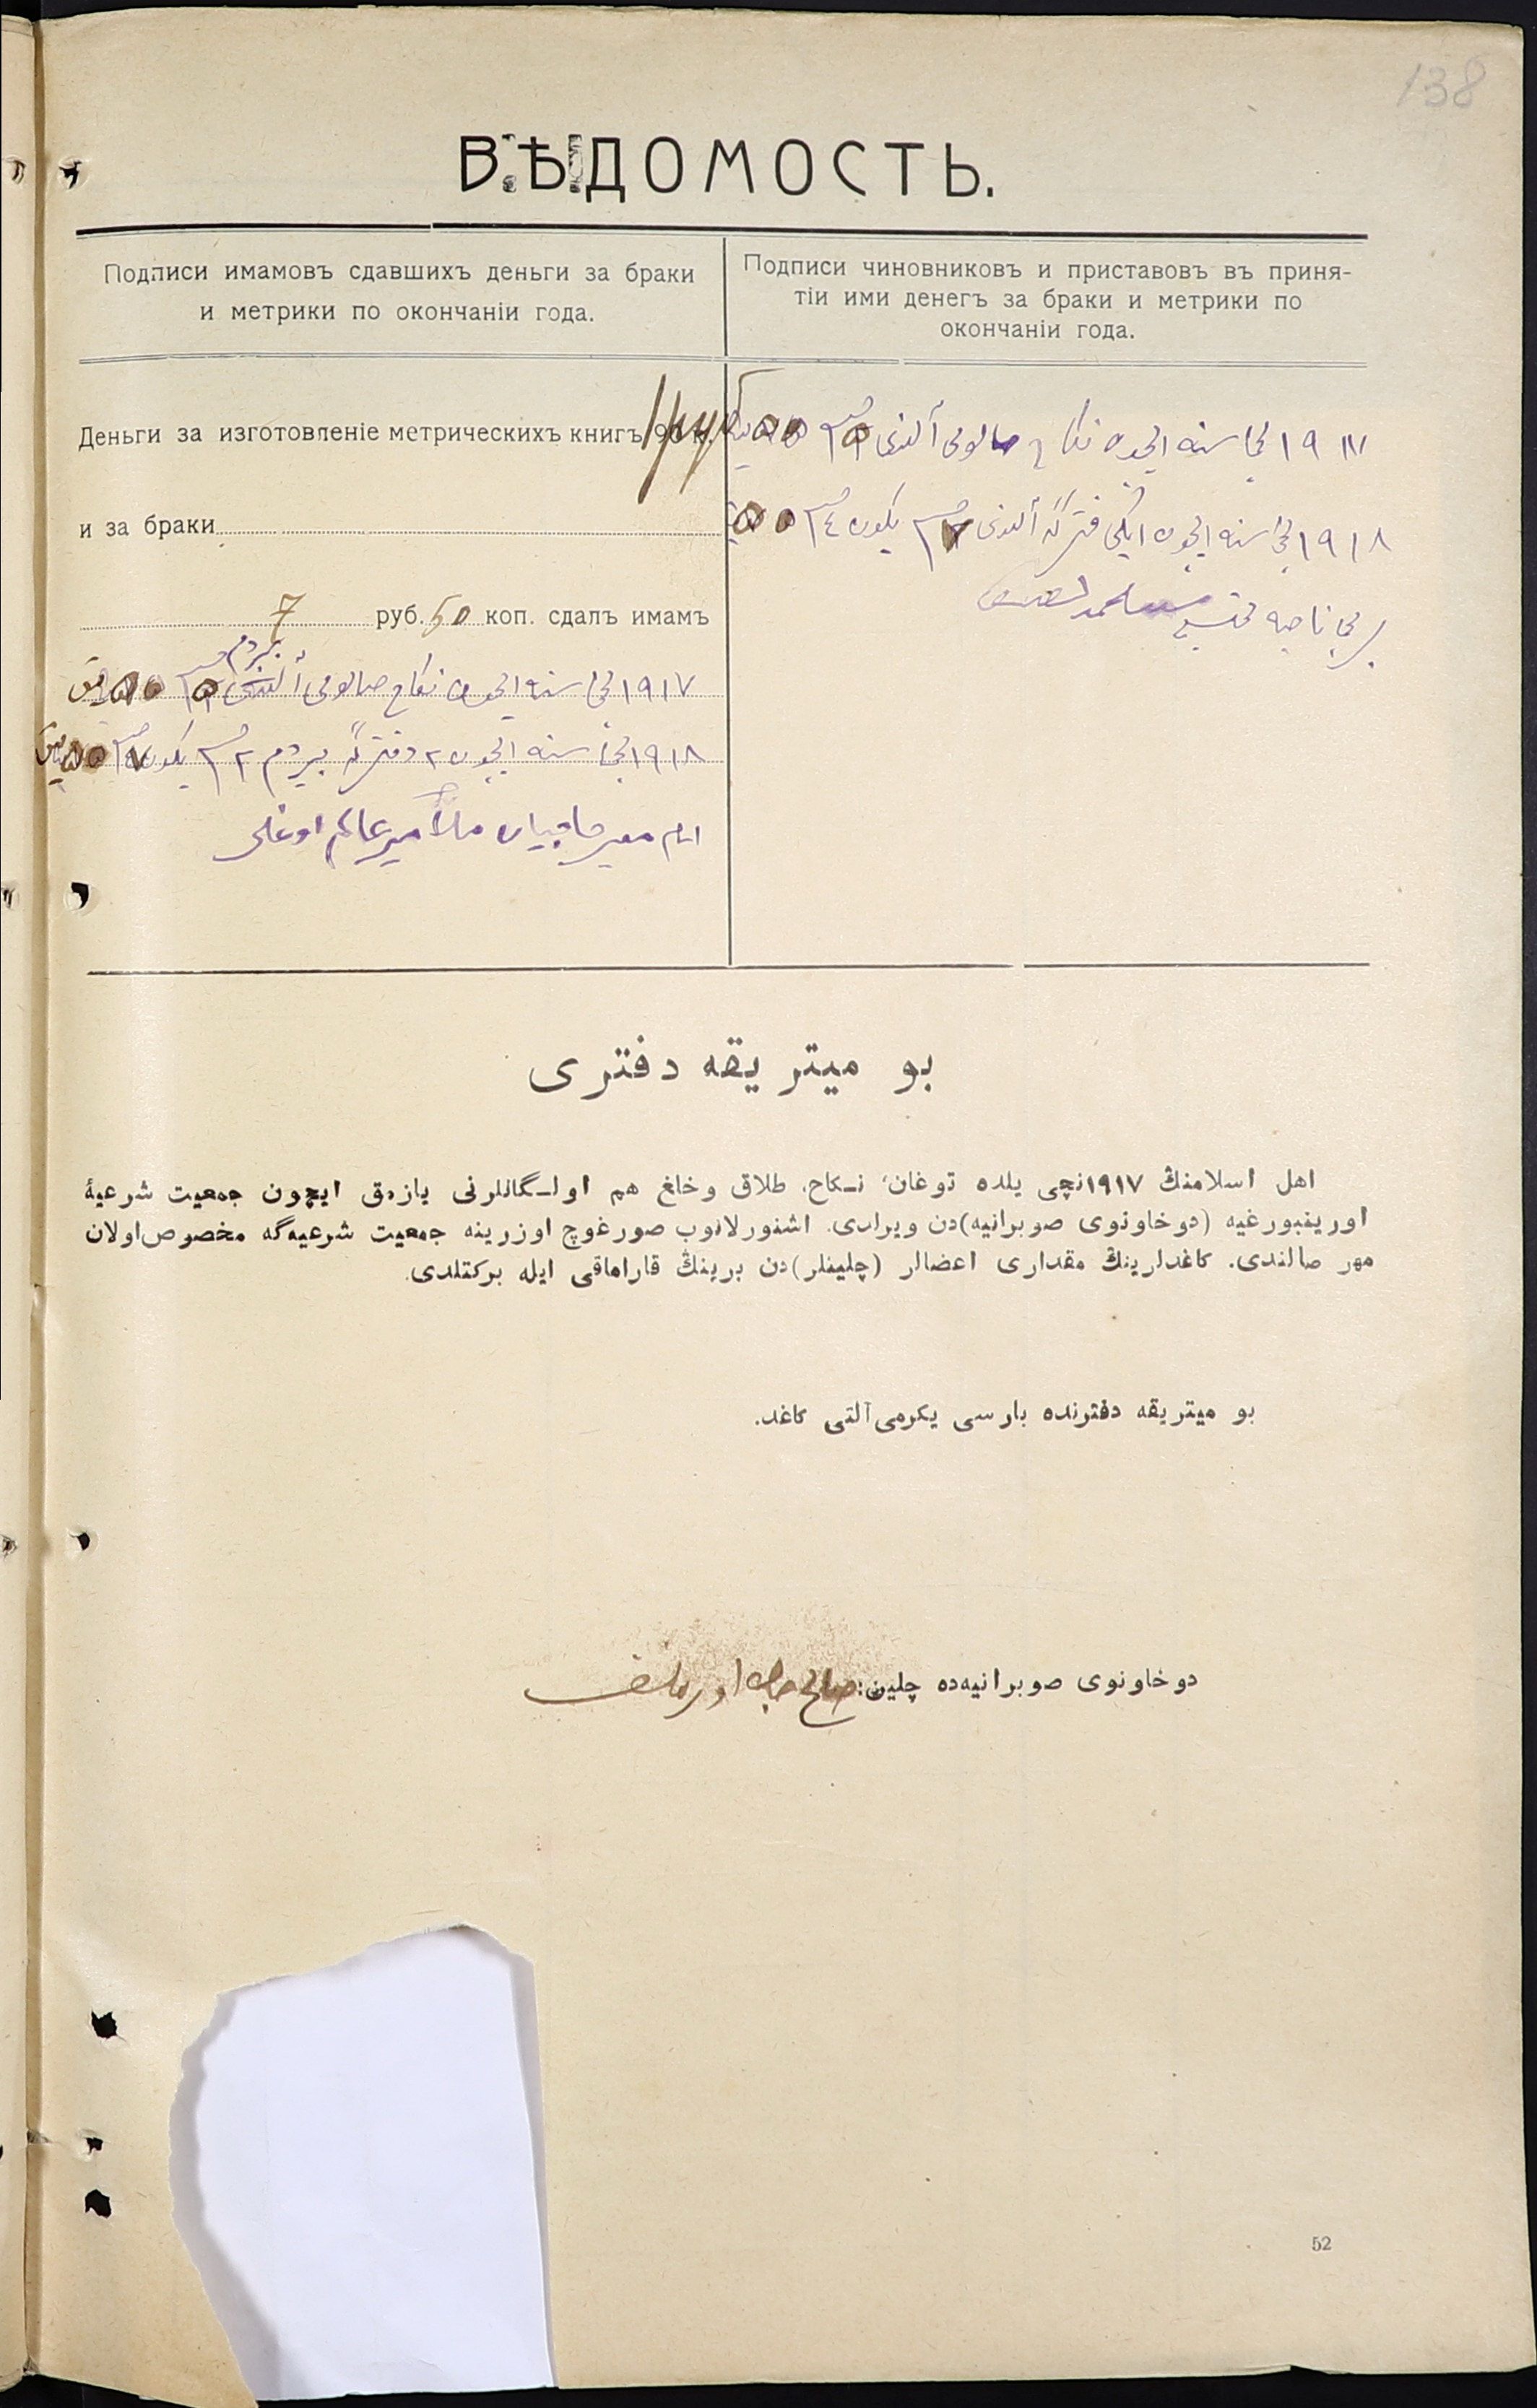 138
ВѢДОМОСТЬ.
Подписи имамовъ сдавшихъ деньги за браки
и метрики по окончаніи года.
Подписи чиновниковъ и приставовъ въ приня-
тіи ими денегъ за браки и метрики по
окончаніи года.
Деньги за изготовленіе метрическихъ книгъ
и за браки
7 руб. 50 коп. сдалъ имамъ
١٩١٧ نچی سنه ایچون نکاح صالومی
بیردم
١٩١٨ نچی سنه ایچون ٢ دفترگه بیردم ٢
امام ملا میرعالم اوغلی
نچی سنه ایچون نکاح صالومی آلندی
١٩١٨ نچی سنه ایچون ایکی دفترگه آلندی
برنچی ناحیه محتسبی
بو میتریقه دفتری
اهل اسلامنڭ ١٩١٧نچی یلده توغان، نـكاح، طلاق وخلغ هم اولـگاللرنی یازمق ایچون جمعیت شرعیۀ
اورینبورغیه (دوخاونوی صوبرانیه)دن ویرلدی. اشنورلانوب صورغوچ اوزرینه جمعیت شرعیه‌گه مخصوص اولان
مهر صالندی. كاغدلرینڭ مقداری اعضالر (چلینلر)دن برینڭ قاراماقی ایله بركتلدی.
بو میتریقه دفترنده بارسی یكرمی آلتی كاغد.
دوخاونوی صوبرانیه‌ده چلین: صالح
52